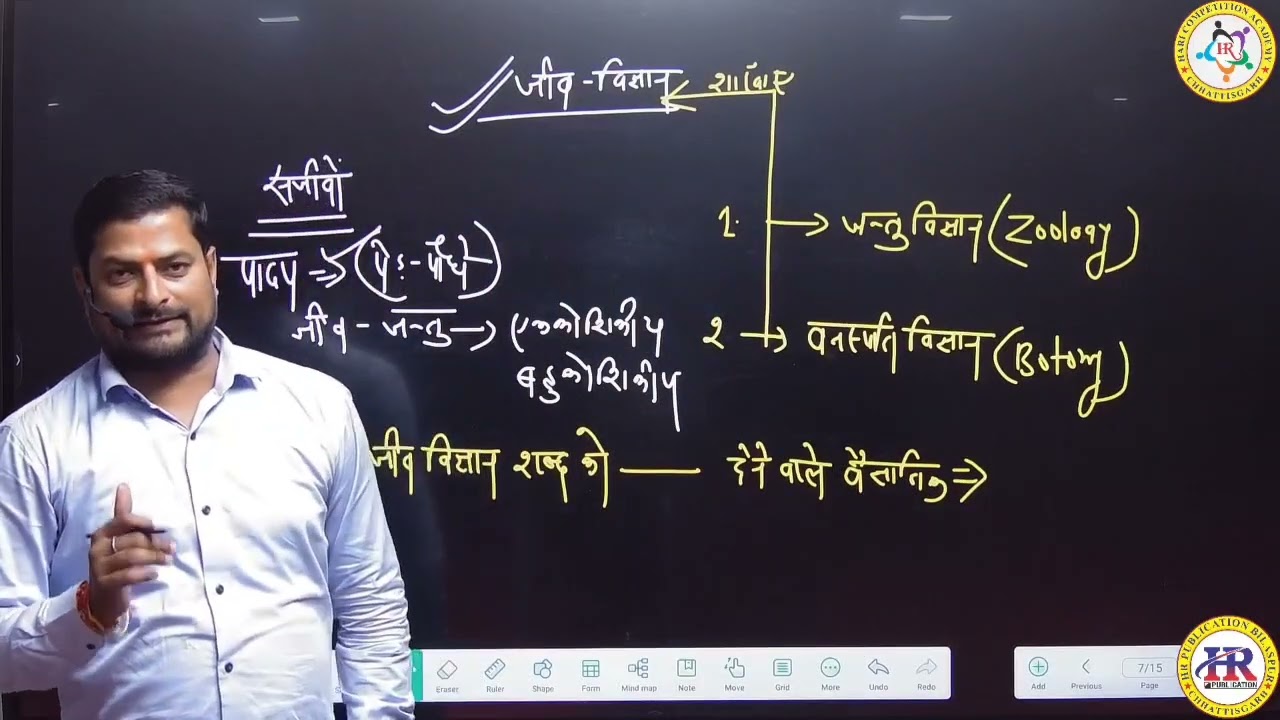 HARI COMPETITION ACADEMY
HR
CHHATTISGARH
जीव-विज्ञान
शाखाएं
सजीवों
पादप ⇒ (पेड़-पौधे)
जीव-जन्तु → एककोशिकीय
बहुकोशिकीय
1. → जन्तु विज्ञान (Zoology)
2 → वनस्पति विज्ञान (Botony)
जीव विज्ञान शब्द को —— देने वाले वैज्ञानिक ⇒
Eraser Ruler Shape Form Mind map Note Move Grid More Undo Redo
Add Previous 7/15 Page
HR PUBLICATION BILASPUR
HR
PUBLICATION
CHHATTISGARH